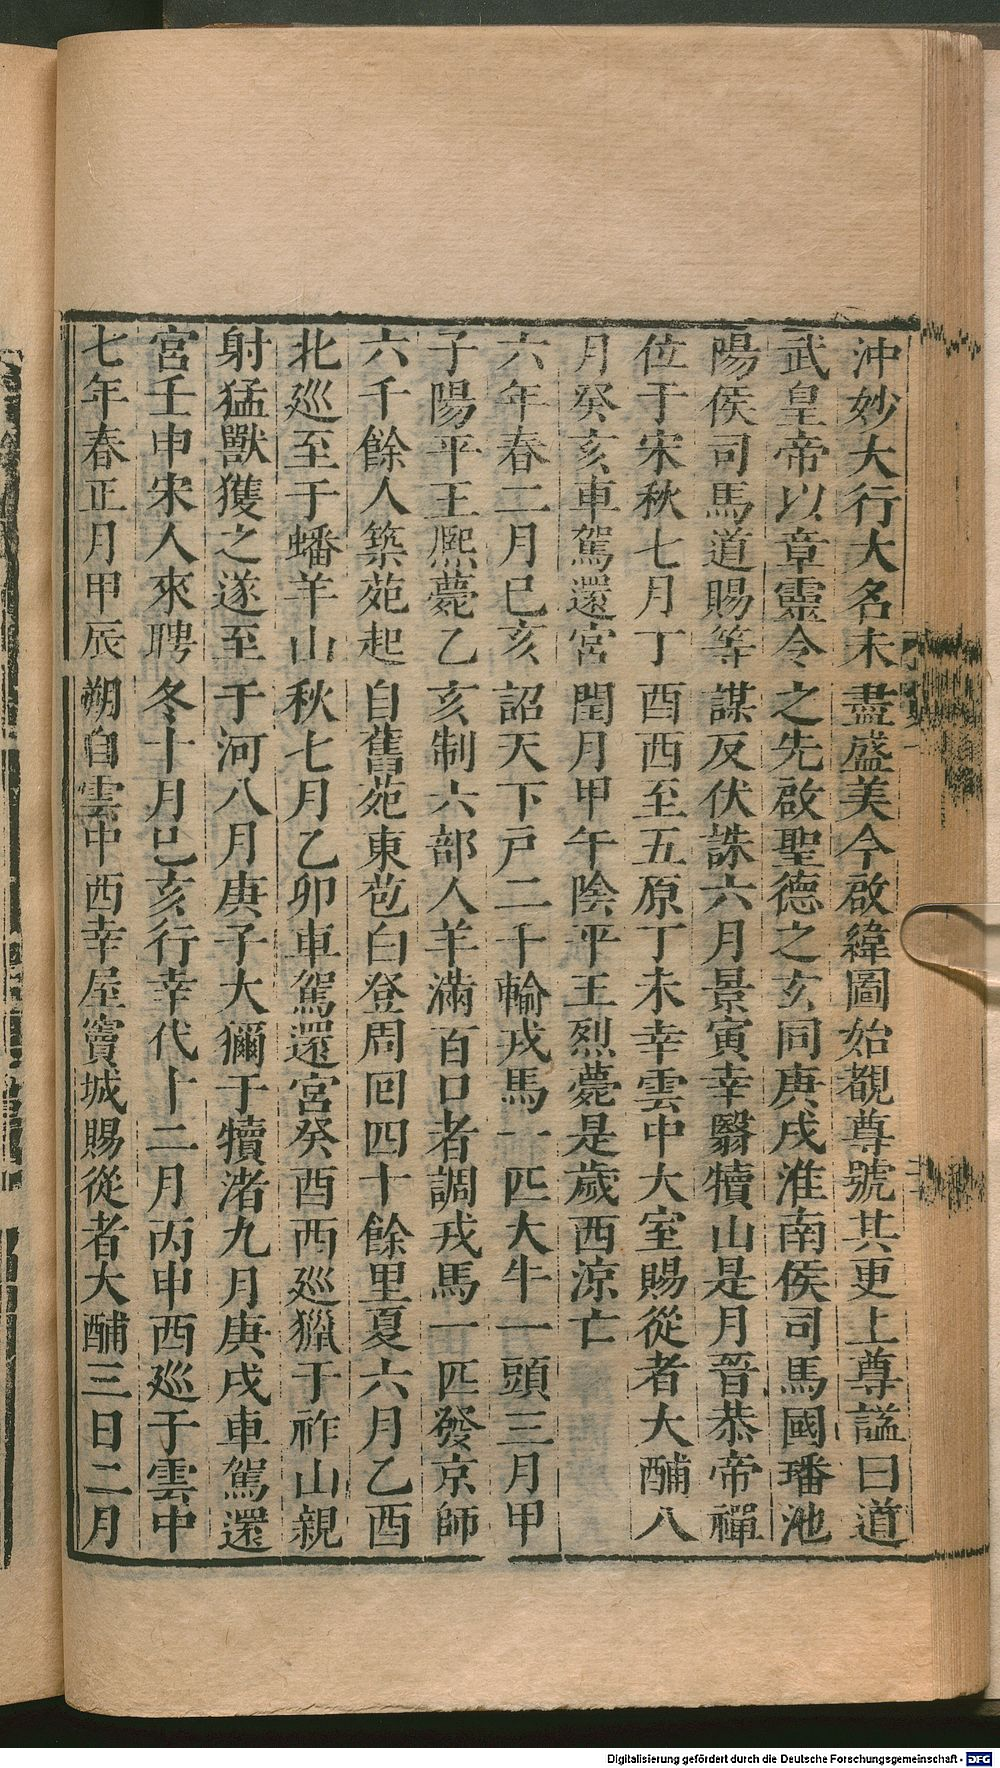 沖妙大行大名未盡盛美今啟緯圖始覩尊號其更上尊謚曰道
武皇帝以章靈令之先啟聖德之玄同庚戌淮南侯司馬國璠池
陽侯司馬道賜等謀反伏誅六月景寅幸翳犢山是月晉恭帝禪
位于宋秋七月丁酉西至五原丁未幸雲中大室賜從者大酺八
月癸亥車駕還宮閏月甲午陰平王烈薨是歲西涼亡
六年春二月巳亥詔天下戸二十輸戎馬一匹大牛一頭三月甲
子陽平王熈薨乙亥制六部人羊滿百口者調戎馬一匹發京師
六千餘人築苑起自舊苑東苞白登周囘四十餘里夏六月乙酉
北廵至于蟠羊山秋七月乙卯車駕還宮癸酉西廵獵于祚山親
射猛獸獲之遂至于河八月庚子大獮于犢渚九月庚戌車駕還
宮壬申宋人來聘冬十月巳亥行幸代十二月丙申西廵于雲中
七年春正月甲辰朔自雲中西幸屋竇城賜從者大酺三日二月
Digitalisierung gefördert durch die Deutsche Forschungsgemeinschaft - DFG